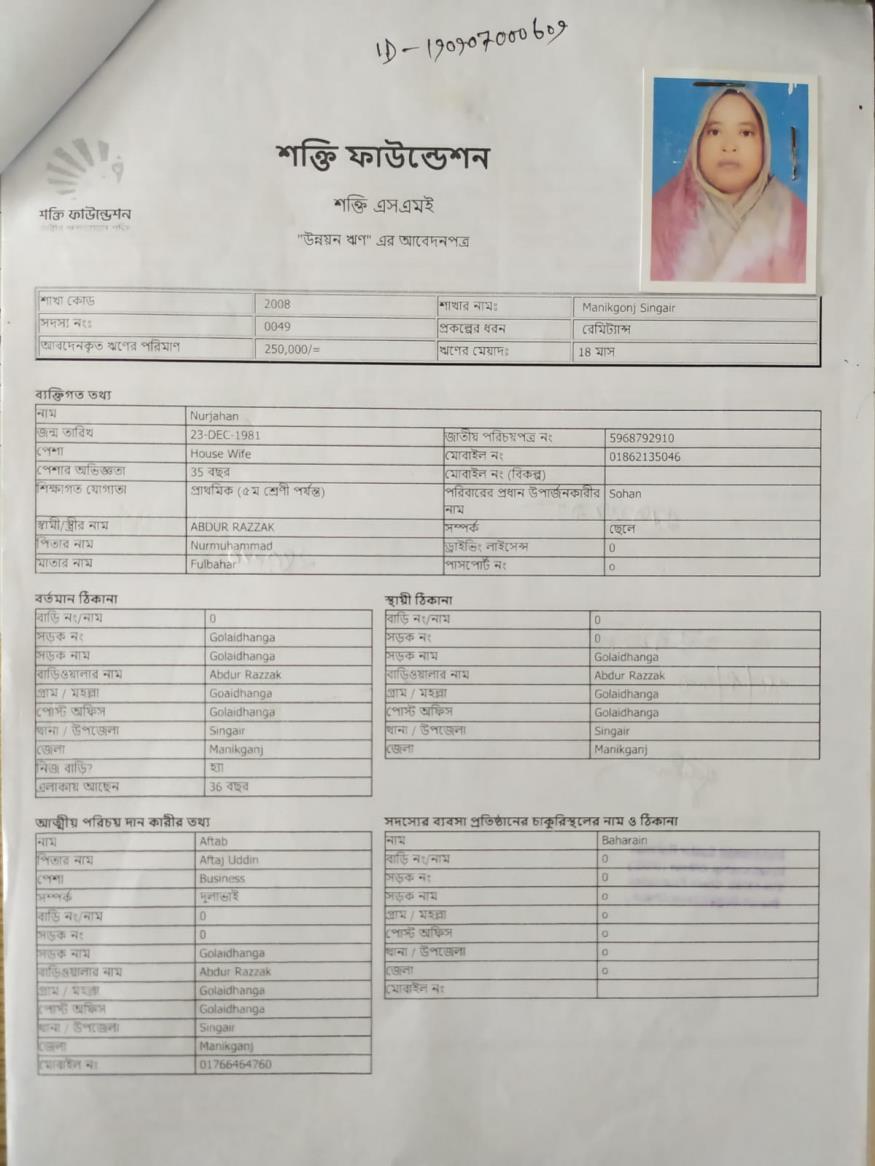 ID-190907000609
শক্তি ফাউন্ডেশন
শক্তি ফাউন্ডেশন
শক্তি এসএমই
"উন্নয়ন ঋণ" এর আবেদনপত্র
শাখা কোড 2008 শাখার নামঃ Manikgonj Singair
সদস্য নংঃ 0049 প্রকল্পের ধরন রেমিট্যান্স
আবদেনকৃত ঋণের পরিমাণ 250,000/= ঋণের মেয়াদঃ 18 মাস
ব্যক্তিগত তথ্য
নাম Nurjahan
জন্ম তারিখ 23-DEC-1981 জাতীয় পরিচয়পত্র নং 5968792910
পেশা House Wife মোবাইল নং 01862135046
পেশার অভিজ্ঞতা 35 বছর মোবাইল নং (বিকল্প)
শিক্ষাগত যোগ্যতা প্রাথমিক (৫ম শ্রেণী পর্যন্ত) পরিবারের প্রধান উপার্জনকারীর Sohan
নাম
স্বামী/স্ত্রীর নাম ABDUR RAZZAK সম্পর্ক ছেলে
পিতার নাম Nurmuhammad ড্রাইভিং লাইসেন্স 0
মাতার নাম Fulbahar পাসপোর্ট নং 0
বর্তমান ঠিকানা
বাড়ি নং/নাম 0
সড়ক নং Golaidhanga
সড়ক নাম Golaidhanga
বাড়িওয়ালার নাম Abdur Razzak
গ্রাম / মহল্লা Goaidhanga
পোস্ট অফিস Golaidhanga
থানা / উপজেলা Singair
জেলা Manikganj
নিজ বাড়ি? হ্যা
এলাকায় আছেন 36 বছর
স্থায়ী ঠিকানা
বাড়ি নং/নাম 0
সড়ক নং 0
সড়ক নাম Golaidhanga
বাড়িওয়ালার নাম Abdur Razzak
গ্রাম / মহল্লা Golaidhanga
পোস্ট অফিস Golaidhanga
থানা / উপজেলা Singair
জেলা Manikganj
আত্মীয় পরিচয় দান কারীর তথ্য
নাম Aftab
পিতার নাম Aftaj Uddin
পেশা Business
সম্পর্ক দূলাভাই
বাড়ি নং/নাম 0
সড়ক নং 0
সড়ক নাম Golaidhanga
বাড়িওয়ালার নাম Abdur Razzak
গ্রাম / মহল্লা Golaidhanga
পোস্ট অফিস Golaidhanga
থানা / উপজেলা Singair
জেলা Manikganj
মোবাইল নং 01766464760
সদস্যের ব্যবসা প্রতিষ্ঠানের চাকুরিস্থলের নাম ও ঠিকানা
নাম Baharain
বাড়ি নং/নাম 0
সড়ক নং 0
সড়ক নাম 0
গ্রাম / মহল্লা 0
পোস্ট অফিস 0
থানা / উপজেলা 0
জেলা 0
মোবাইল নং